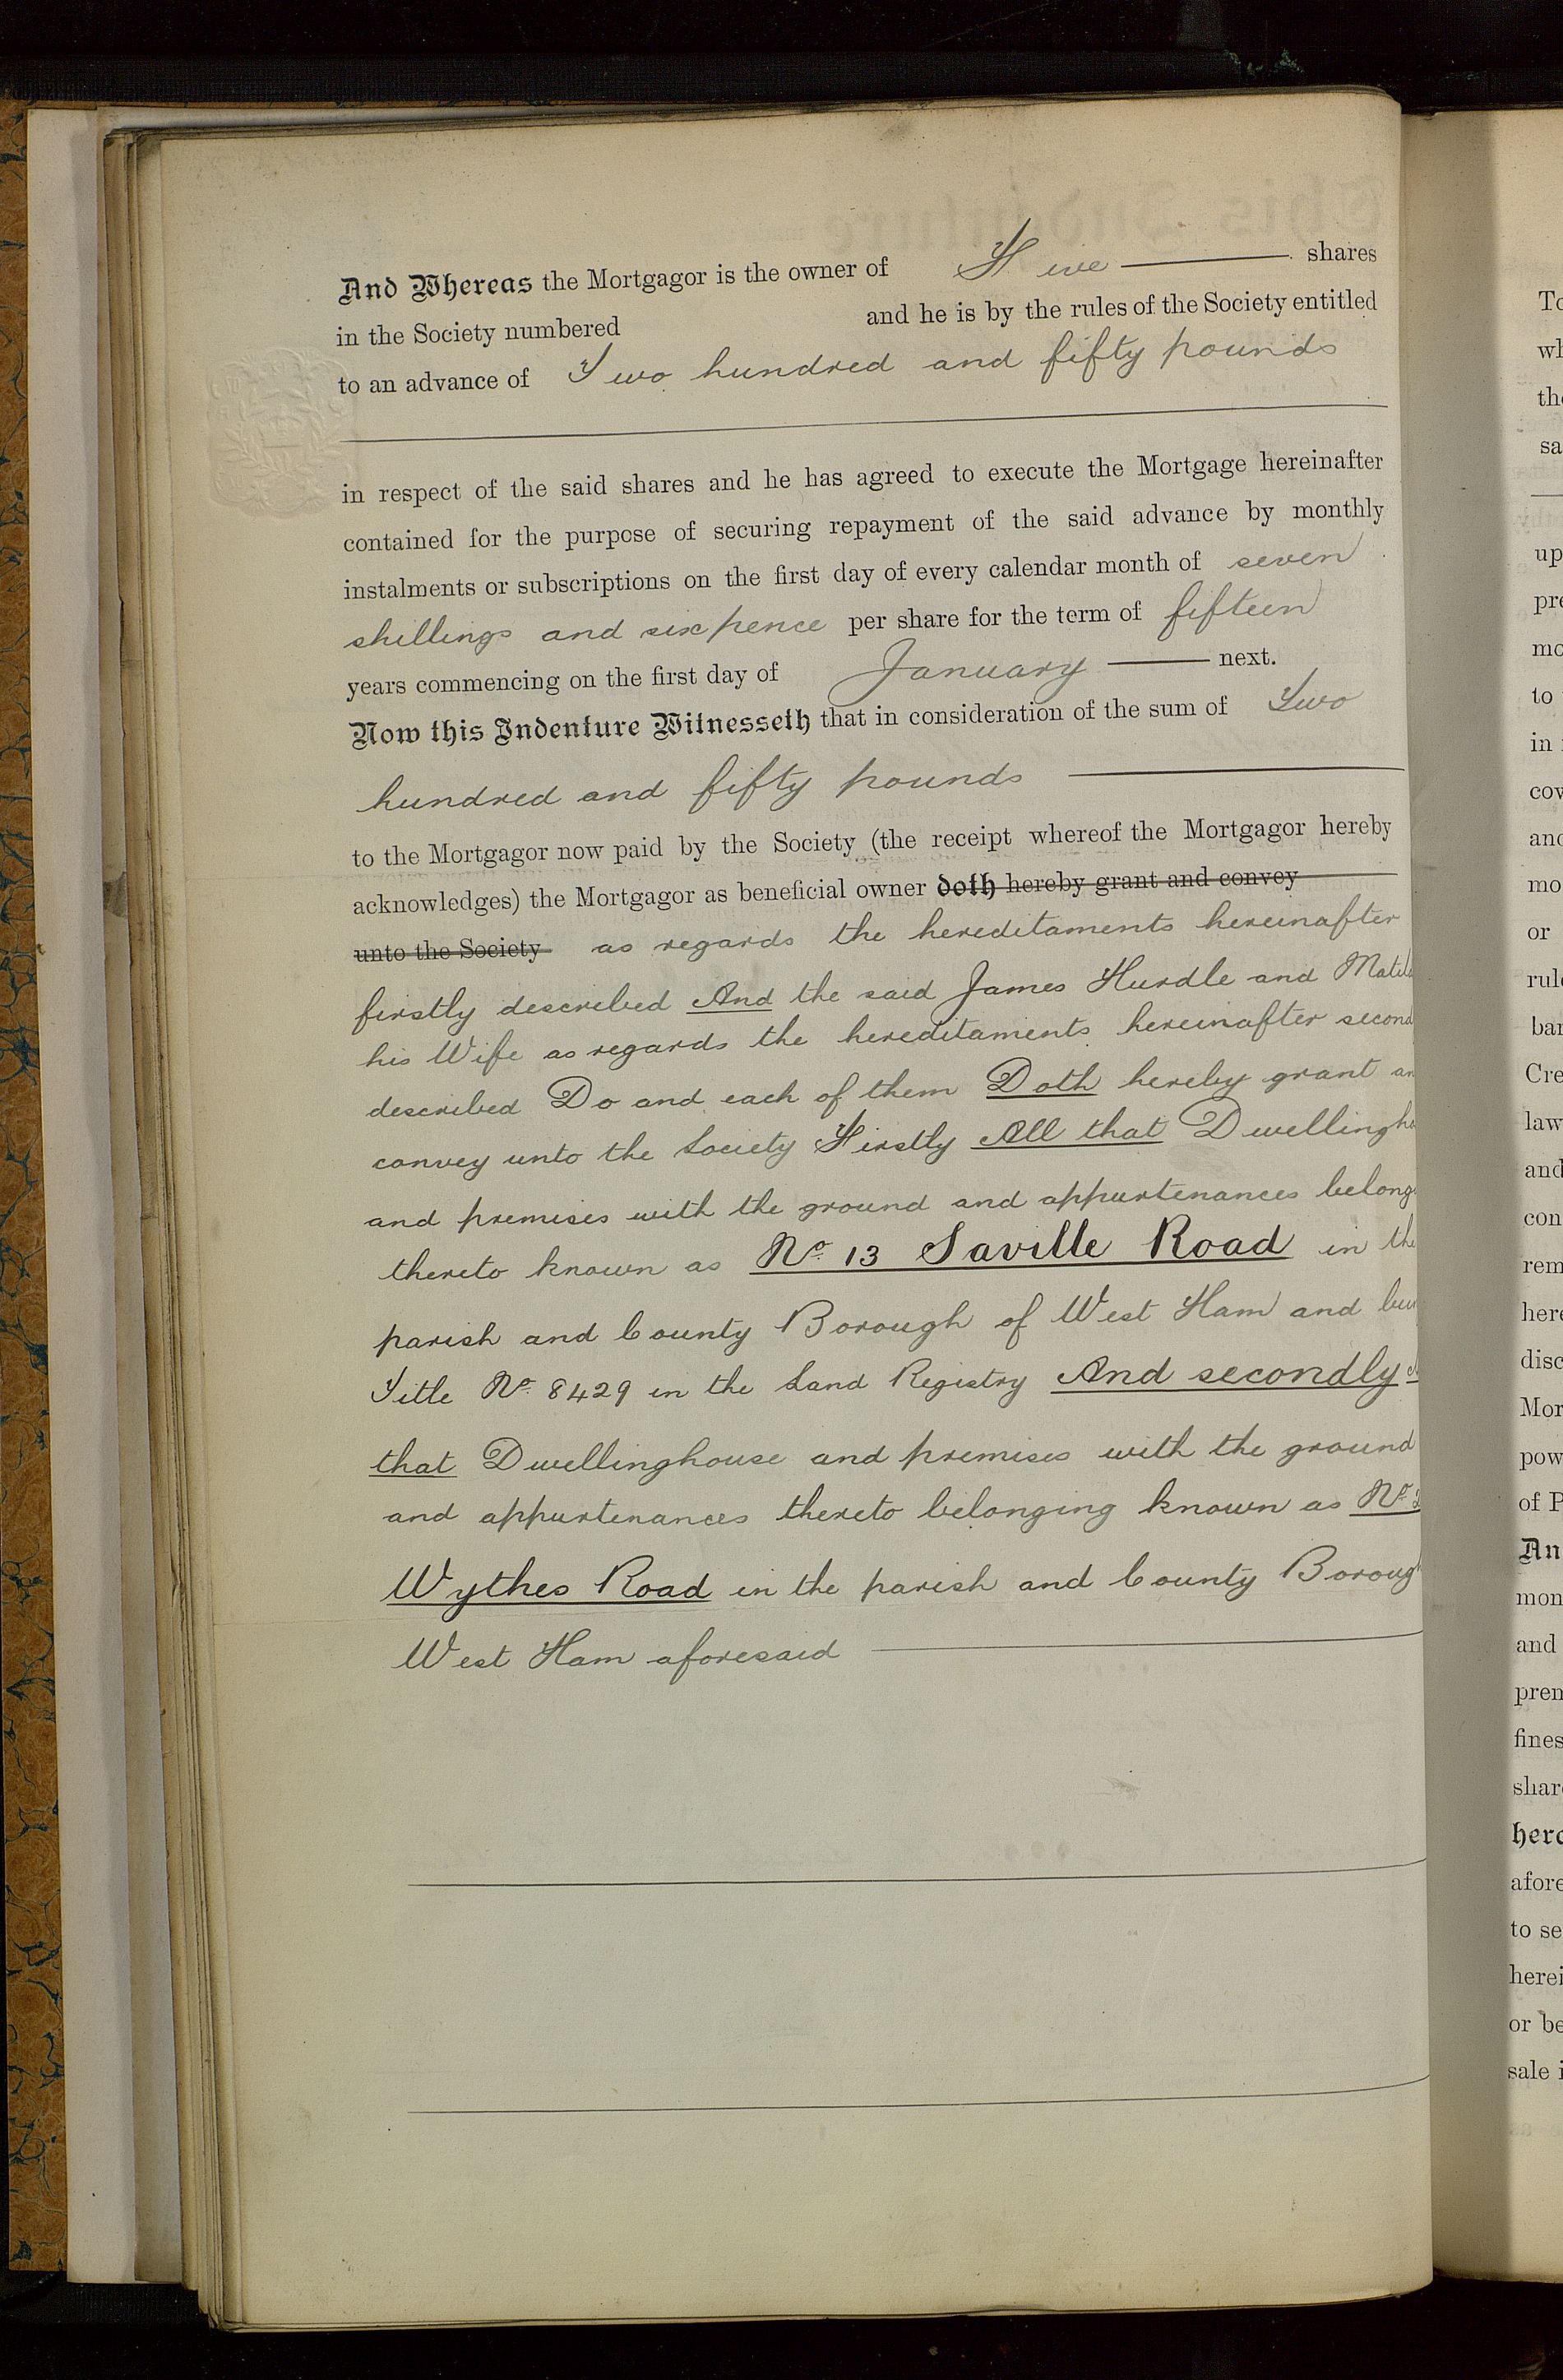 And Whereas the Mortgagor is the owner of Five shares
in the Society numbered and he is by the rules of the Society entitled
to an advance of Two hundred and fifty pounds
in respect of the said shares and he has agreed to execute the Mortgage hereinafter
contained for the purpose of securing repayment of the said advance by monthly
instalments or subscriptions on the first day of every calendar month of seven
shillings and sixpence per share for the term of fifteen
years commencing on the first day of January next.
Now this Indenture Witnesseth that in consideration of the sum of Two
hundred and fifty pounds
to the Mortgagor now paid by the Society (the receipt whereof the Mortgagor hereby
acknowledges) the Mortgagor as beneficial owner doth hereby grant and convey
unto the Society as regards the hereditaments hereinafter
firstly described And the said James Hurdle and Matil
his Wife as regards the hereditaments hereinafter second
described Do and each of them Doth hereby grant an
convey unto the Society Firstly All that Dwellingho
and premises with the ground and appurtenances belong
thereto known as No. 13 Saville Road in the
parish and County Borough of West Ham and
Title No. 8429 in the Land Registry And secondly
that Dwellinghouse and premises with the ground
and appurtenances thereto belonging known as No.
Wythes Road in the parish and County Boroug
West Ham aforesaid
To
wh
the
sa
up
pre
mo
to
in
cov
and
mo
or
rule
bar
Cre
law
and
con
rem
here
disc
Mor
pow
of P
An
mon
and
prem
fines
share
here
afore
to se
herei
or be
sale i